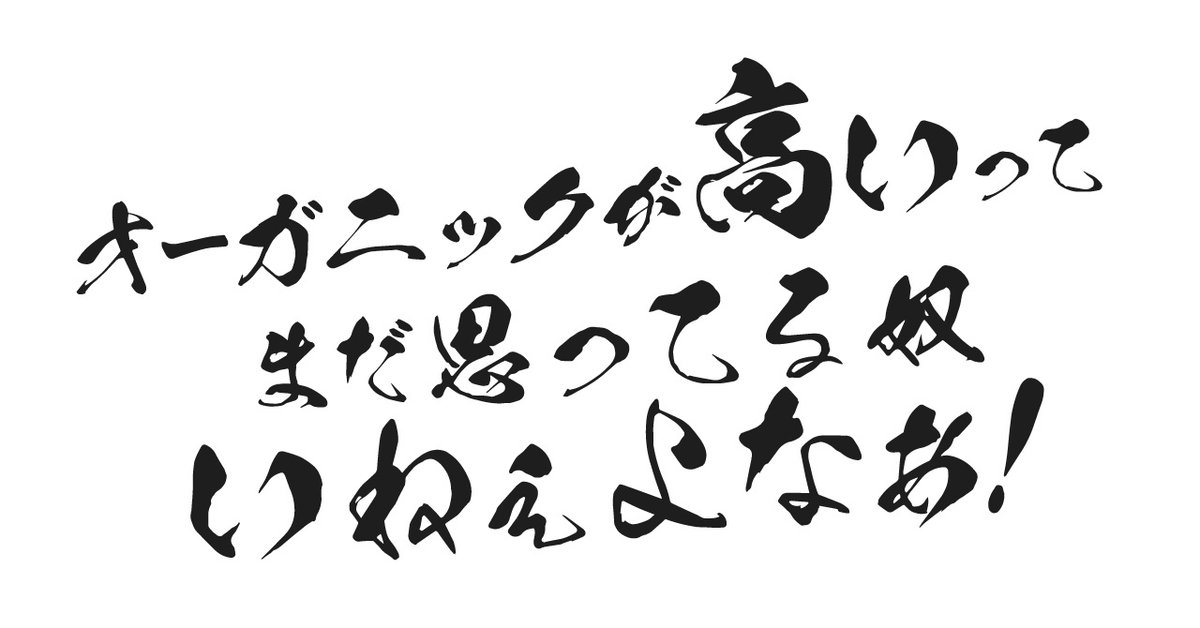 オーガニックが高いって
まだ思ってる奴
いねぇよなぁ!